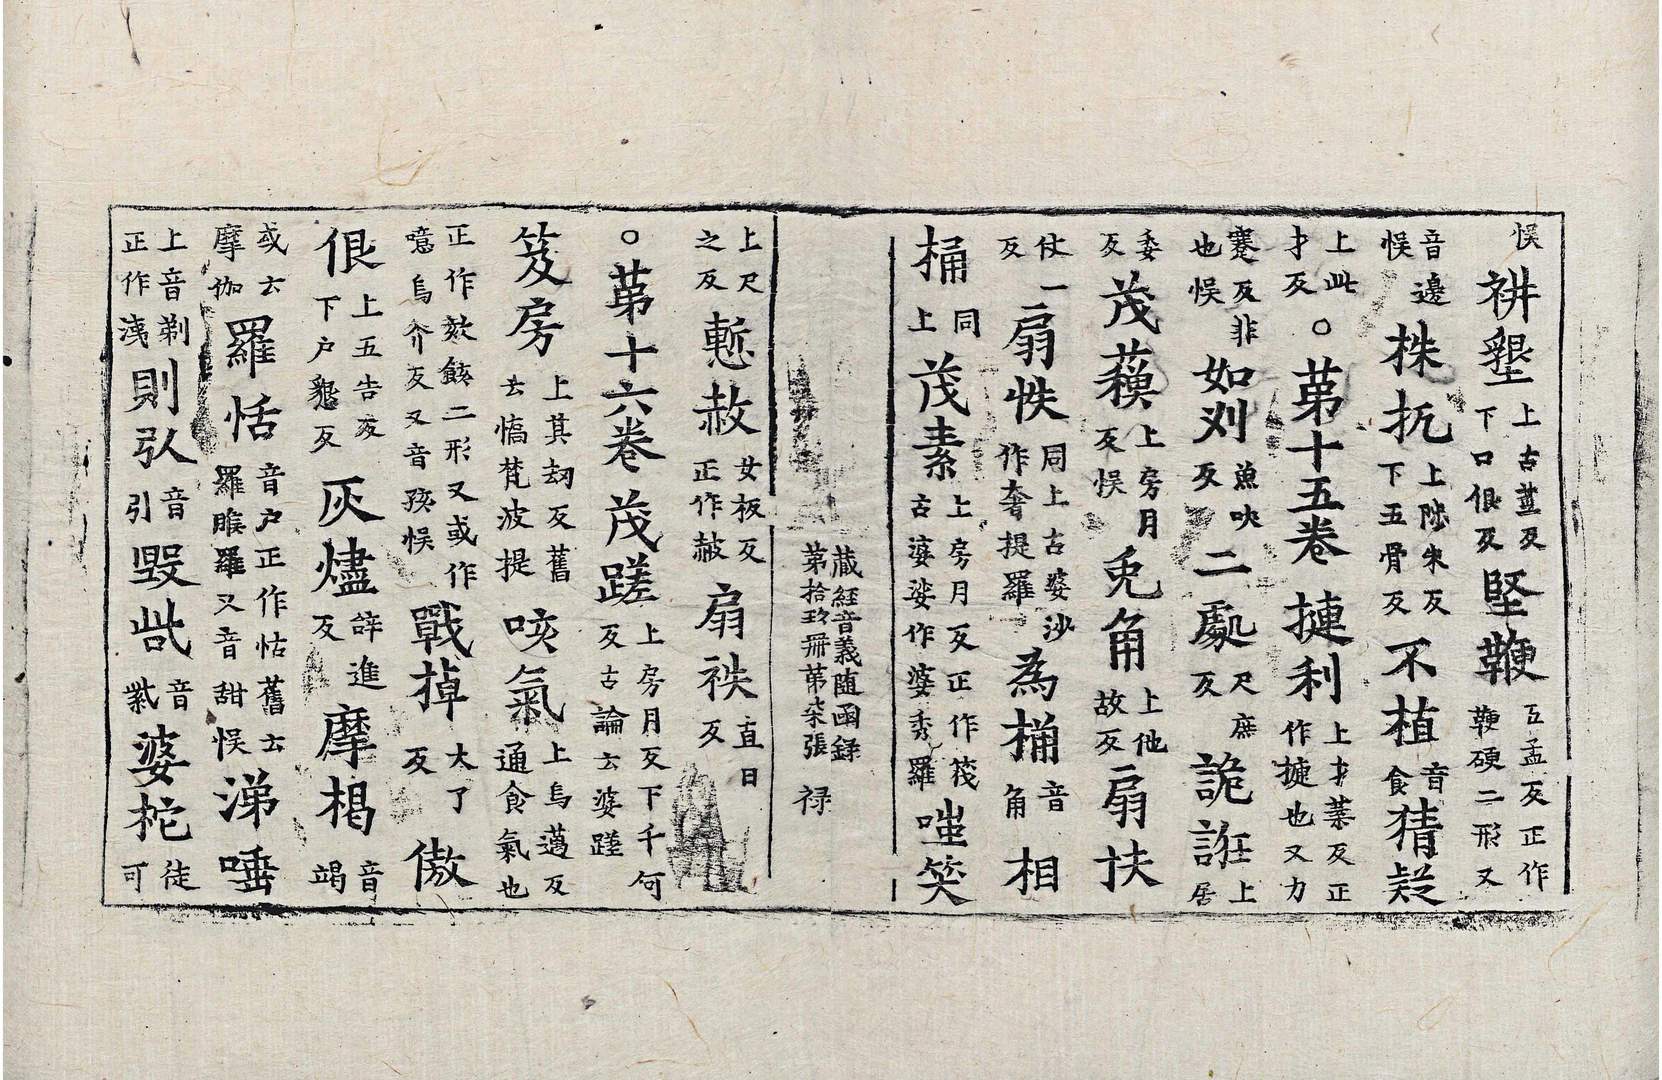 悮耕墾上古莖反下口佷反堅鞕五孟反正作鞕硬二形又
音邊悮株扤上陟朱反下五骨反不植音食猜疑
上此才反○苐十五卷揵利上才葉反正作揵也又力
蹇反非也悮如刈魚吠反二處尺庶反詭誑上居
委反茂䕼上房月反悮兎角上他故反扇扶
仗一反扇怢同上古婆沙作奢提羅為桷音角相
桷同上茂素上房月反正作筏古婆娑作婆秀羅嗤笑
藏經音義随函錄第拾玖冊第柒張 禄
上尺之反慙赦女板反正作赧扇袟直日反
○苐十六卷茂蹉上房月反下千何反古論云婆蹉
笈房上其刼反舊云憍梵波提咳氣上烏邁反通食氣也
正作欬餩二形又或作噫烏介反又音孩悮戰掉大了反傲
佷上五告反下户懇反灰燼辝進反摩楬音竭
或云摩伽羅怙音户正作怙舊云羅睺羅又音甜悮涕唾
上音剃正作洟則㧈音引毀呰音紫婆柁徒可